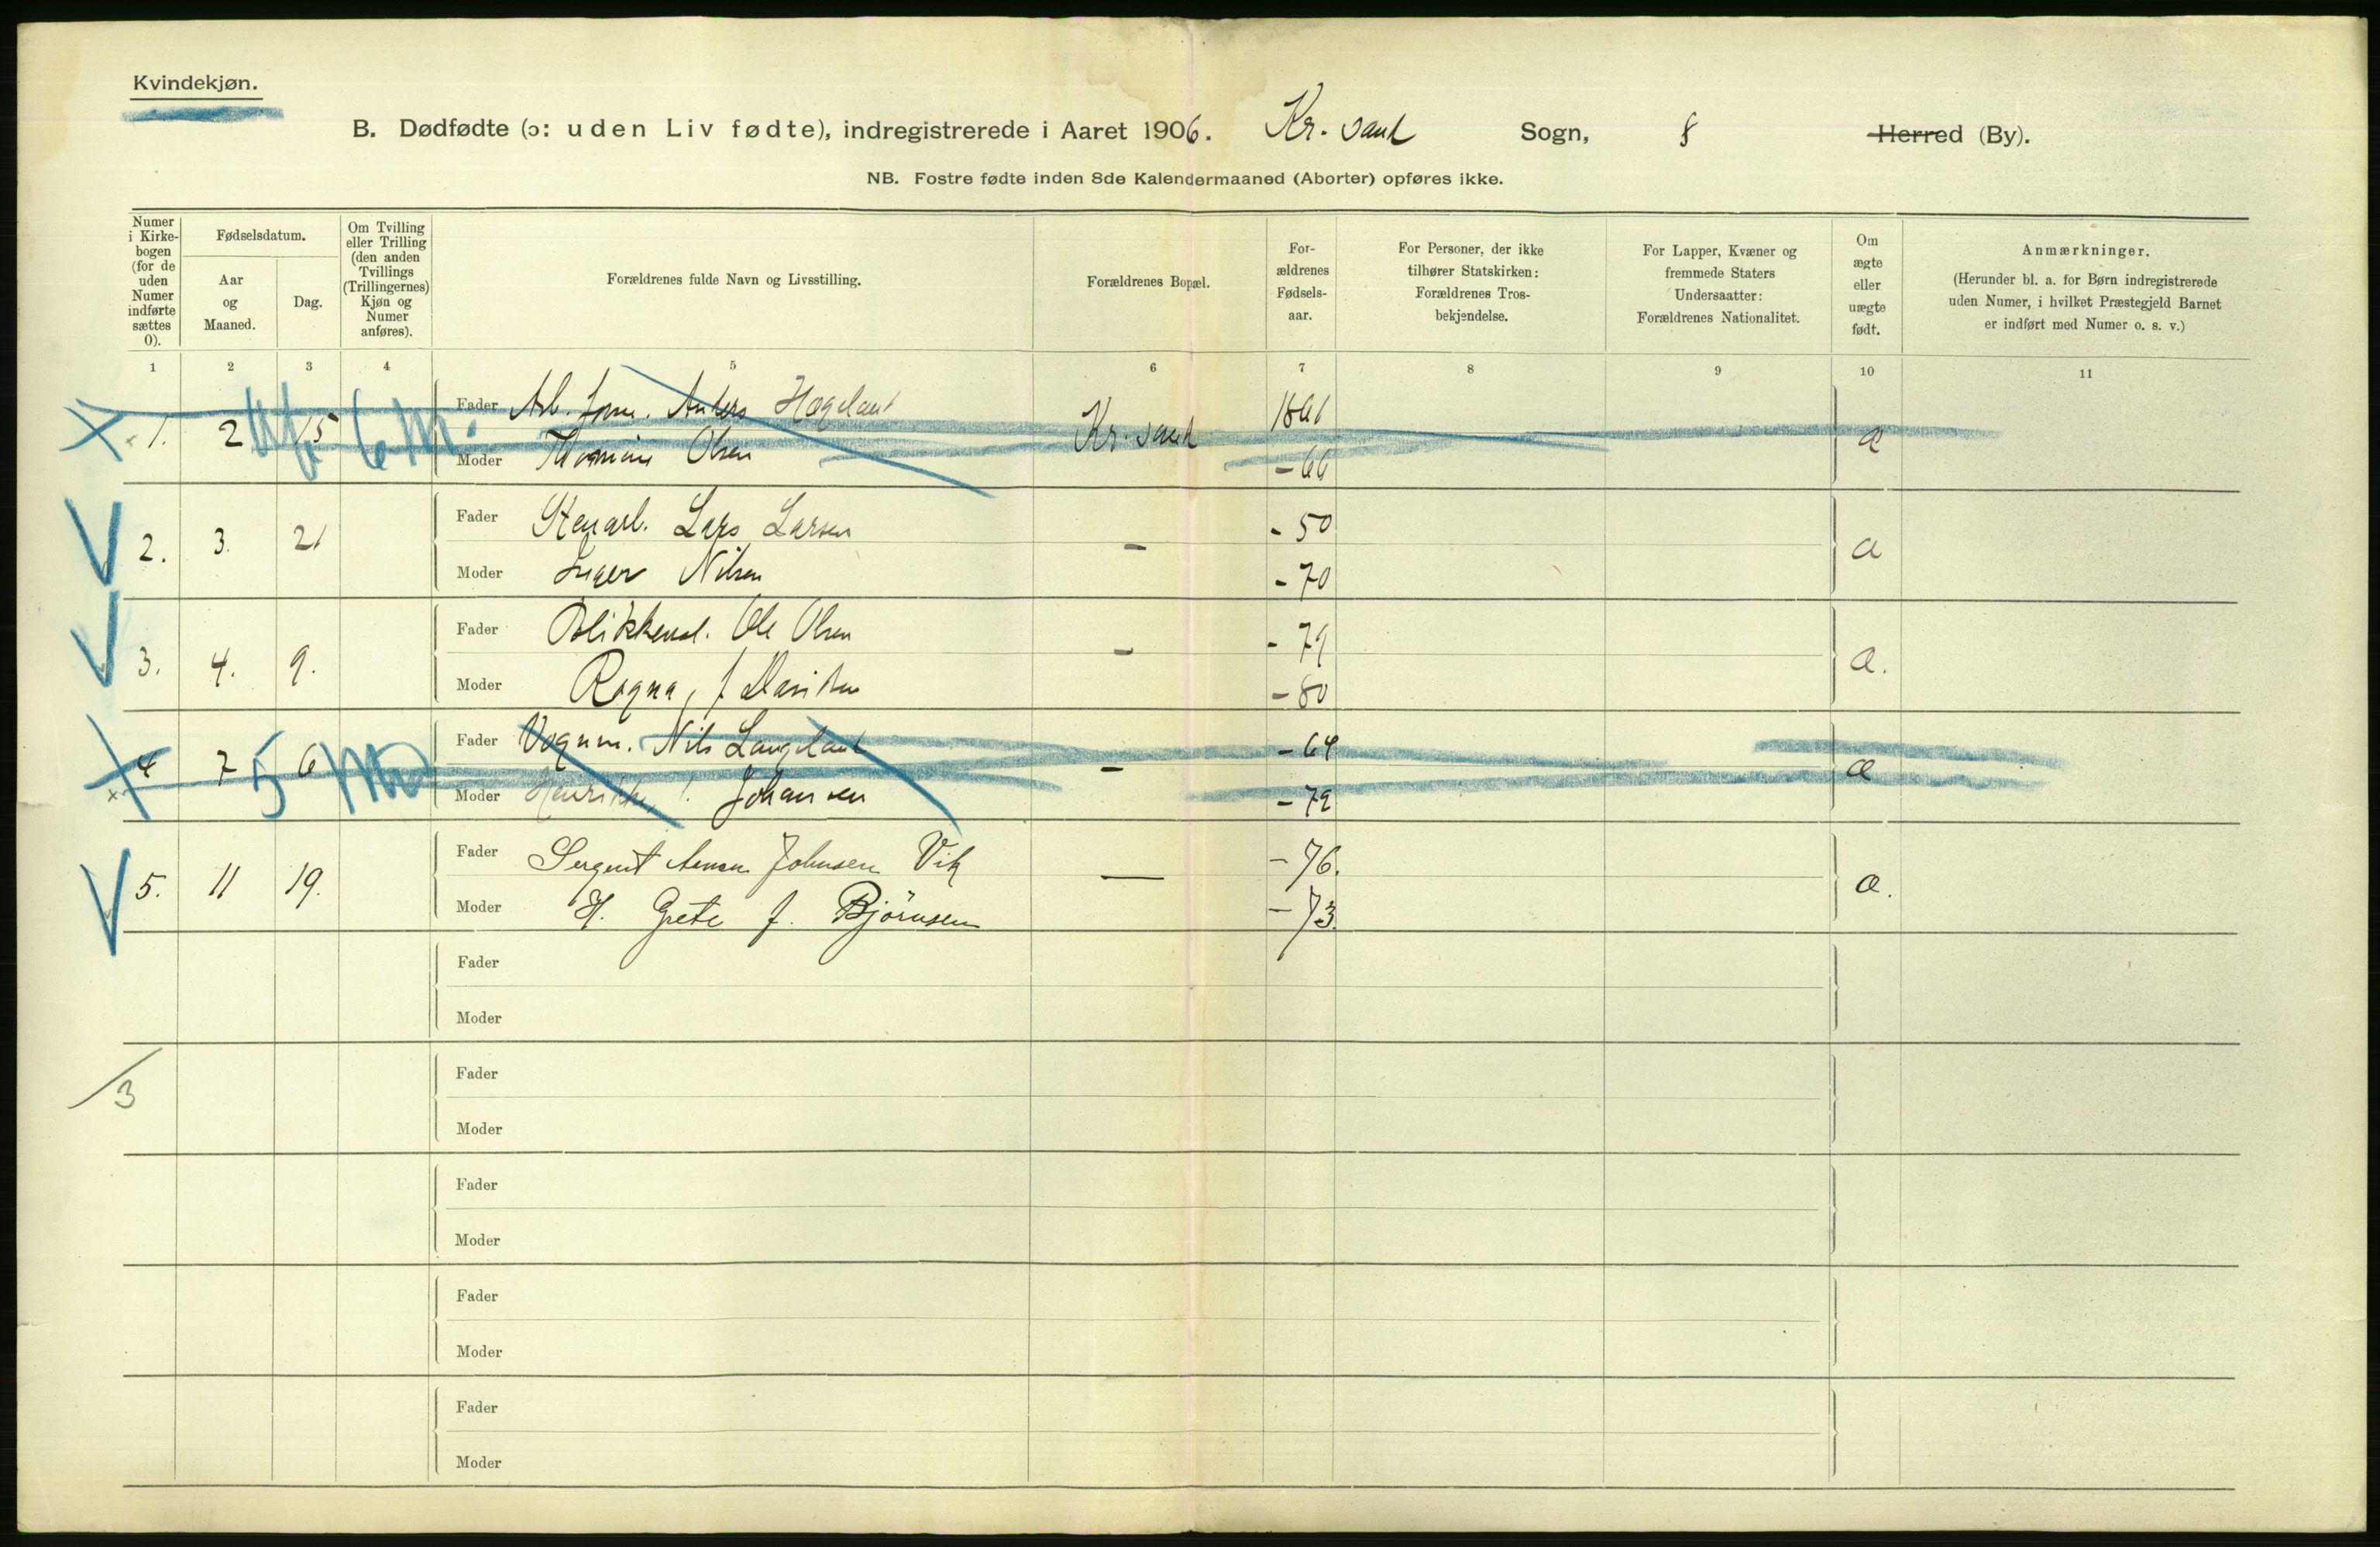 Kvindekjøn.
B. Dødfødte (ɔ: uden Liv fødte), indregistrerede i Aaret 1906. Kr. sand Sogn, 8 Herred (By).
NB. Fostre fødte inden 8de Kalendermaaned (Aborter) opføres ikke.
Numer i Kirke-bogen (for de uden Numer indførte sættes 0).
Fødselsdatum.
Aar og Maaned.
Dag.
Om Tvilling eller Trilling (den anden Tvillings (Trillingernes) Kjøn og Numer anføres).
Forældrenes fulde Navn og Livsstilling.
Forældrenes Bopæl.
For-ældrenes Fødsels-aar.
For Personer, der ikke tilhører Statskirken: Forældrenes Tros-bekjendelse.
For Lapper, Kvæner og fremmede Staters Undersaatter: Forældrenes Nationalitet.
Om ægte eller uægte født.
Anmærkninger.
(Herunder bl. a. for Børn indregistrerede uden Numer, i hvilket Præstegjeld Barnet er indført med Numer o. s. v.)
1 2 3 4 5 6 7 8 9 10 11
1. 2 15 6 m. Fader Arb. form. Anders Høgeland Kr. sand 1861 æ
Moder Olsen - 66
2. 3. 21 Fader Stenarb. Lars Larsen - - 50 æ
Moder Inger Nilsen - 70
3. 4. 9. Fader Blikkensl. Ole Olsen - - 79 æ.
Moder Ragna, f. - 80
4 7 6 5 md Fader Vognm. Nils Langeland - - 64 æ
Moder Henrikke, f. Johansen - 72
5. 11 19. Fader Sergent Johnsen Vik - - 76. æ.
Moder H. Grete f. Björnsen - 73.
Fader
Moder
3
Fader
Moder
Fader
Moder
Fader
Moder
Fader
Moder